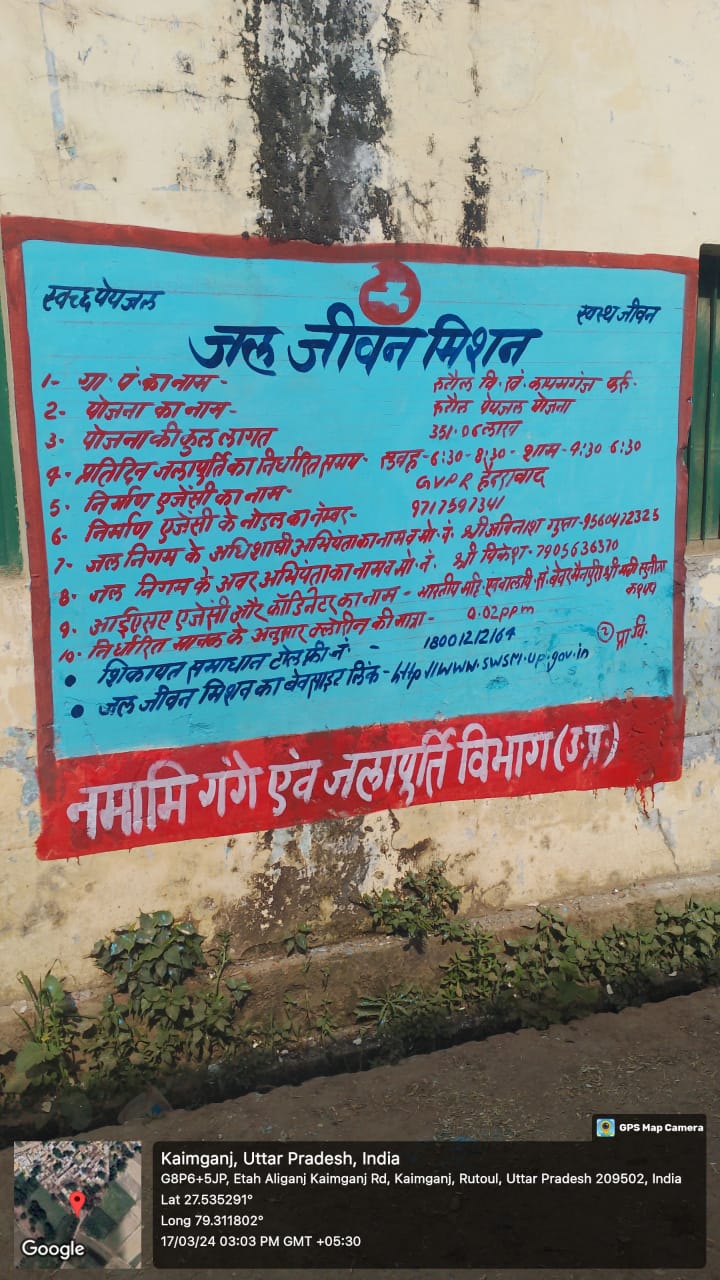 स्वच्छ पेयजल
स्वस्थ जीवन
जल जीवन मिशन
1- ग्रा. पं. का नाम - रुटौल वि. खं. कायमगंज फर्रु.
2- योजना का नाम - रुटौल पेयजल योजना
3- योजना की कुल लागत 351.06 लाख
4- प्रतिदिन जलापूर्ति का निर्धारित समय- सुबह-6:30-8:30 - शाम-4:30 6:30
5- निर्माण एजेंसी का नाम- GVPR हैदराबाद
6- निर्माण एजेंसी के नोडल का नंम्बर- 9717597341
7- जल निगम के अधिशाषी अभियंता का नाम व मो. नं. श्री अविनाश गुप्ता-9560472325
8- जल निगम के अवर अभियंता का नाम व मो. नं. श्री विकेश-7905636370
9- आईएसए एजेंसी और कॉडिनेटर का नाम - भारतीय महि. स्वावलंवि. सं. बेवर मैनपुरी श्री मती सुनीता
10- निर्धारित मानक के अनुसार क्लोरीन की मात्रा- 0.02ppm
② प्रा.वि.
• शिकायत समाधान टोल फ्री नं. - 18001212164
• जल जीवन मिशन का बेवसाइट लिंक-http//www.swsm.up.gov.in
नमामि गंगे एंव जलापुर्ति विभाग (उ.प्र.)
GPS Map Camera
Kaimganj, Uttar Pradesh, India
G8P6+5JP, Etah Aliganj Kaimganj Rd, Kaimganj, Rutoul, Uttar Pradesh 209502, India
Lat 27.535291°
Long 79.311802°
17/03/24 03:03 PM GMT +05:30
Google